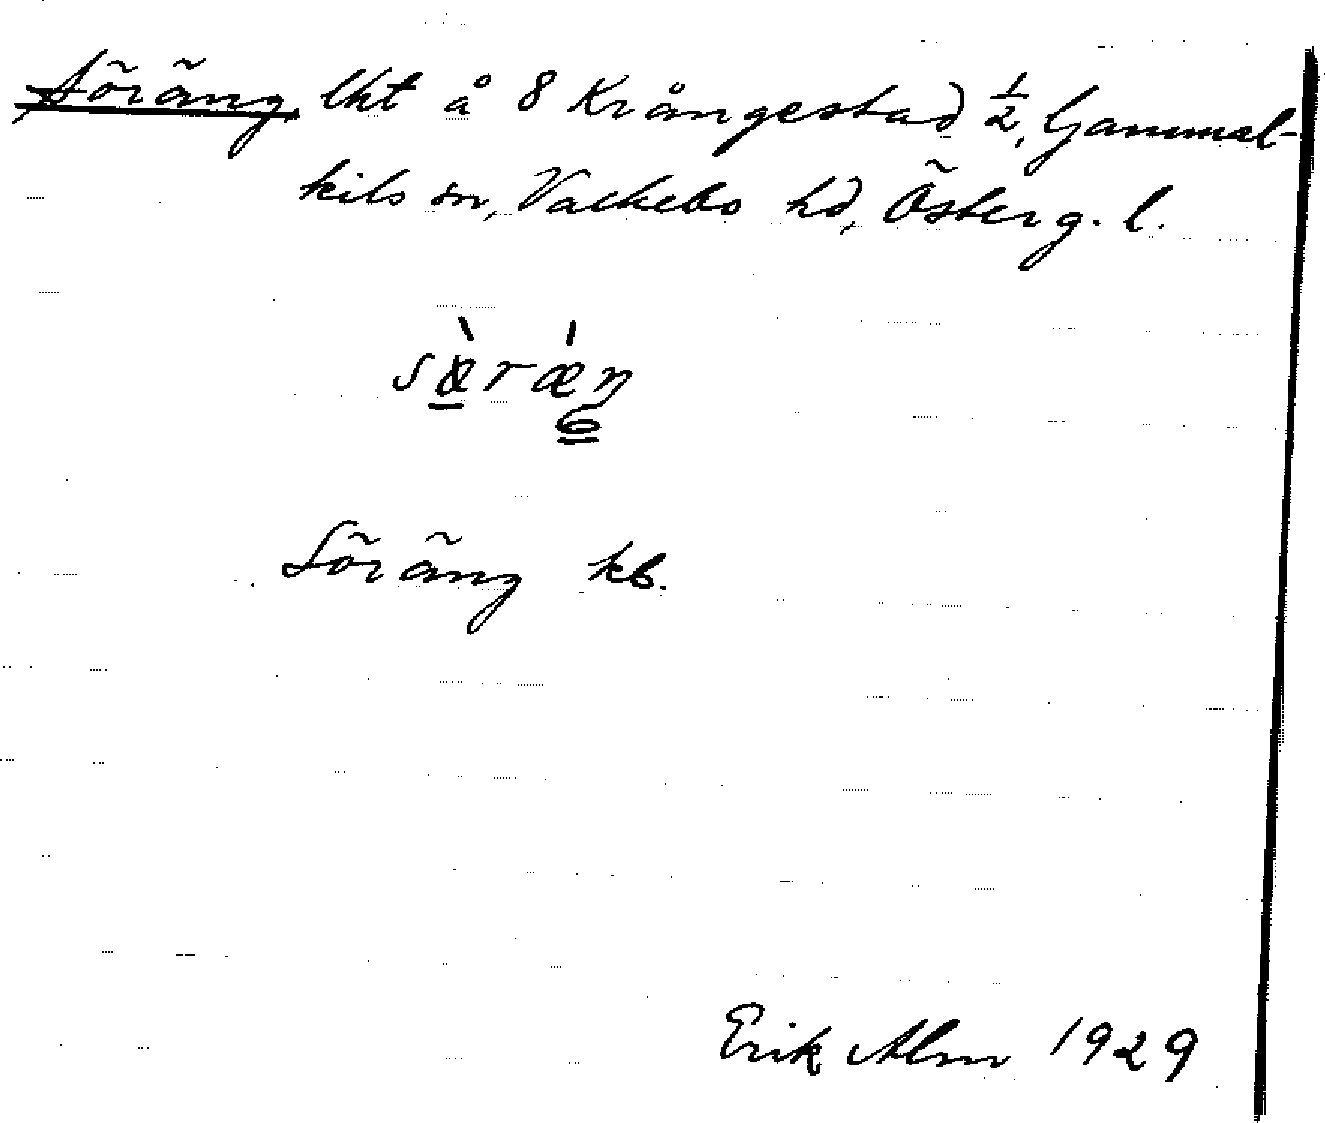 Söräng, lht å 8 Krångestad 1/2, Gammal-
kils sn, Valkebo hd, Österg. l.
Söräng kb.
Erik Alm 1929